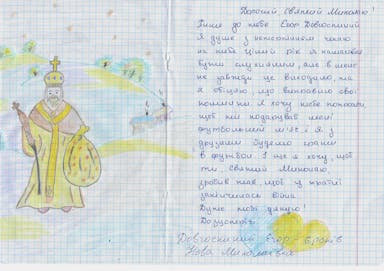 Дорогий Святий Миколаю!
Пише до тебе Єгор Довгоспиний
Я дуже з нетерпінням чекаю
на тебе цілий рік я намагався
бути слухняним, але в мене
не завжди це виходило, та
я обіцяю, що виправлю свої
помилки. Я хочу тебе попросити,
щоб ти подарував мені
футбольний м'яч і я з
друзями будемо грати
в футбол. І ще я хочу, щоб
ти, Святий Миколаю,
зробив так, щоб у країні
закінчилася війна.
Дуже тобі дякую!
До зустрічі.
Єгор
Нова Миколаївка